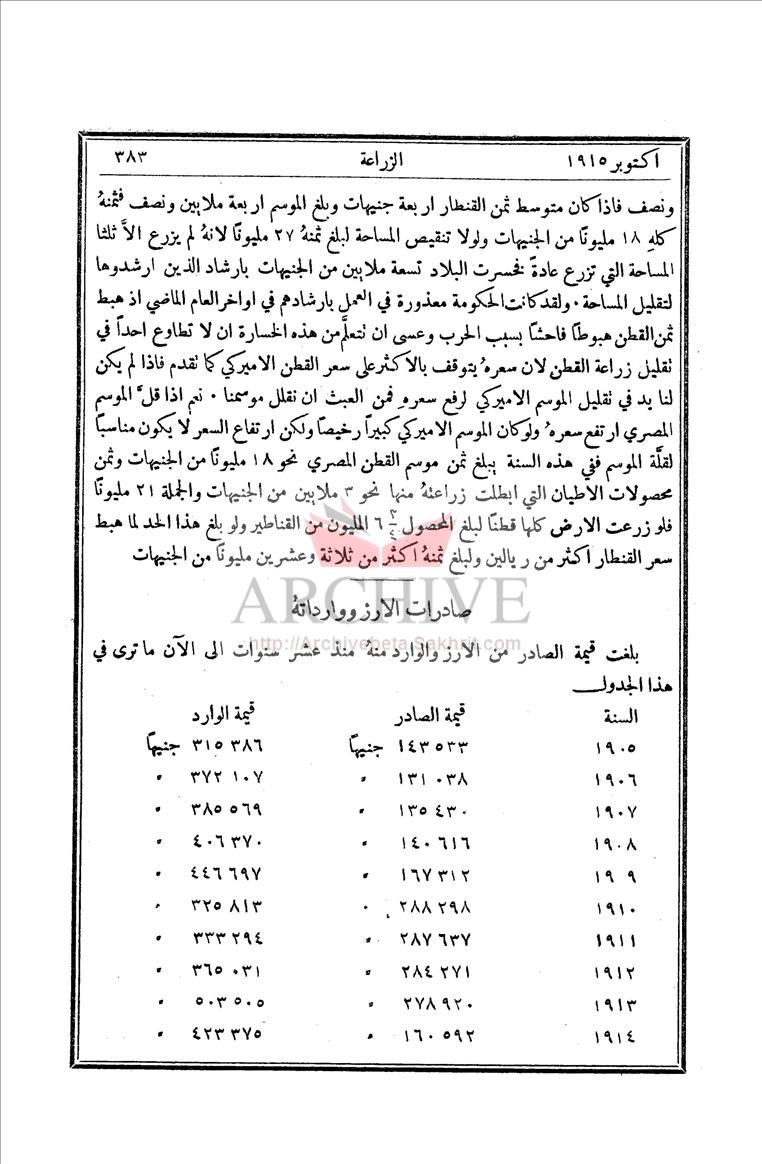 اكتوبر ١٩١٥ الزراعة ٣٨٣
ونصف فاذا كان متوسط ثمن القنطار اربعة جنيهات وبلغ الموسم اربعة ملابين ونصف فثمنهُ
كلهِ ١٨ مليونًا من الجنيهات ولولا تنقيص المساحة لبلغ ثمنهُ ٢٧ مليونًا لانهُ لم يزرع الاَّ ثلثا
المساحة التي تزرع عادةً فخسرت البلاد تسعة ملابين من الجنيهات بارشاد الذين ارشدوها
لتقليل المساحة ٠ ولقد كانت الحكومة معذورة في العمل بارشادهم في اواخر العام الماضي اذ هبط
ثمن القطن هبوطًا فاحشًا بسبب الحرب وعسى ان نتعلَّم من هذه الخسارة ان لا تطاوع احداً في
نقليل زراعة القطن لان سعرهُ يتوقف بالاكثر على سعر القطن الاميركي كما نقدم فاذا لم يكن
لنا يد في نقليل الموسم الاميركي لرفع سعرهِ فمن العبث ان نقلل موسمنا ٠ نعم اذا قلَّ الموسم
المصري ارتفع سعرهُ ولو كان الموسم الاميركي كبيراً رخيصًا ولكن ارتفاع السعر لا يكون مناسبًا
لقلَّة الموسم ففي هذه السنة يبلغ ثمن موسم القطن المصري نحو ١٨ مليونًا من الجنيهات وثمن
محصولات الاطيان التي ابطلت زراعتهُ منها نحو ٣ ملابين من الجنيهات والجملة ٢١ مليونًا
فلو زرعت الارض كلها قطنًا لبلغ المحصول ٦ ٣/٤ المليون من القناطير ولو بلغ هذا الحد لما هبط
سعر القنطار اكثر من ريالين ولبلغ ثمنهُ اكثر من ثلاثة وعشرين مليونًا من الجنيهات
ARCHIVE
صادرات الارز ووارداتهُ
http://Archivebeta.Sakhrit.com
بلغت قيمة الصادر من الارز والوارد منهُ منذ عشر سنوات الى الآن ما ترى في
هذا الجدول
السنة قيمة الصادر قيمة الوارد
١٩٠٥ ١٤٣ ٥٣٣ جنيهًا ٣١٥ ٣٨٦ جنيهًا
١٩٠٦ ١٣١ ٠٣٨ " ٣٧٢ ١٠٧ "
١٩٠٧ ١٣٥ ٤٣٠ " ٣٨٥ ٥٦٩ "
١٩٠٨ ١٤٠ ٦١٦ " ٤٠٦ ٣٧٠ "
١٩٠٩ ١٦٧ ٣١٢ " ٤٤٦ ٦٩٧ "
١٩١٠ ٢٨٨ ٢٩٨ " ٣٢٥ ٨١٣ "
١٩١١ ٢٨٧ ٦٣٧ " ٣٣٣ ٢٩٤ "
١٩١٢ ٢٨٤ ٢٧١ " ٣٦٥ ٠٣١ "
١٩١٣ ٢٧٨ ٩٢٠ " ٥٠٣ ٥٠٥ "
١٩١٤ ١٦٠ ٥٩٢ " ٤٢٣ ٣٧٥ "